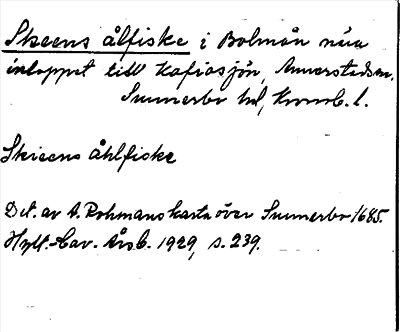 Skeens ålfiske i Bolmån nära
inloppet till Kafiasjön, Annerstads sn.
Sunnerbo hd, Kronob. l.
Skieens åhlfiske
Det. av A. Rohmans karta över Sunnerbo 1685.
Hylt.-Cav. Årsb. 1929, s. 239.